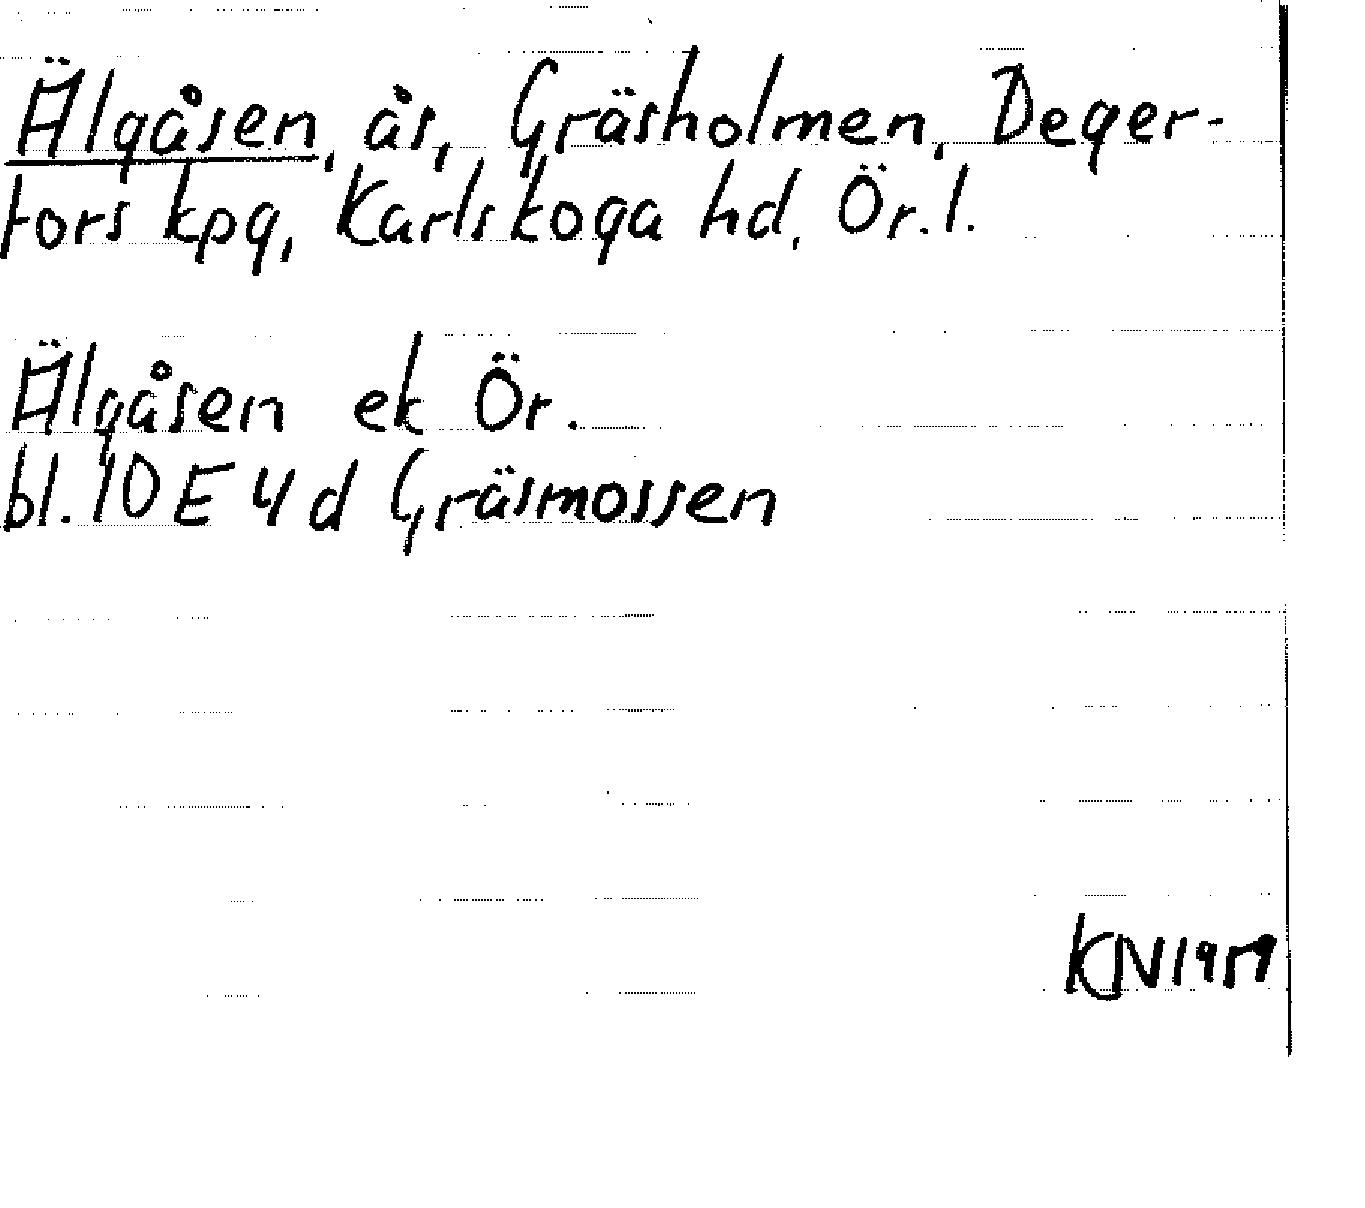 Älgåsen, ås, Gräsholmen, Deger-
fors kpg, Karlskoga hd, Ör.l.
Älgåsen ek Ör.
bl. 10 E 4 d Gräsmossen